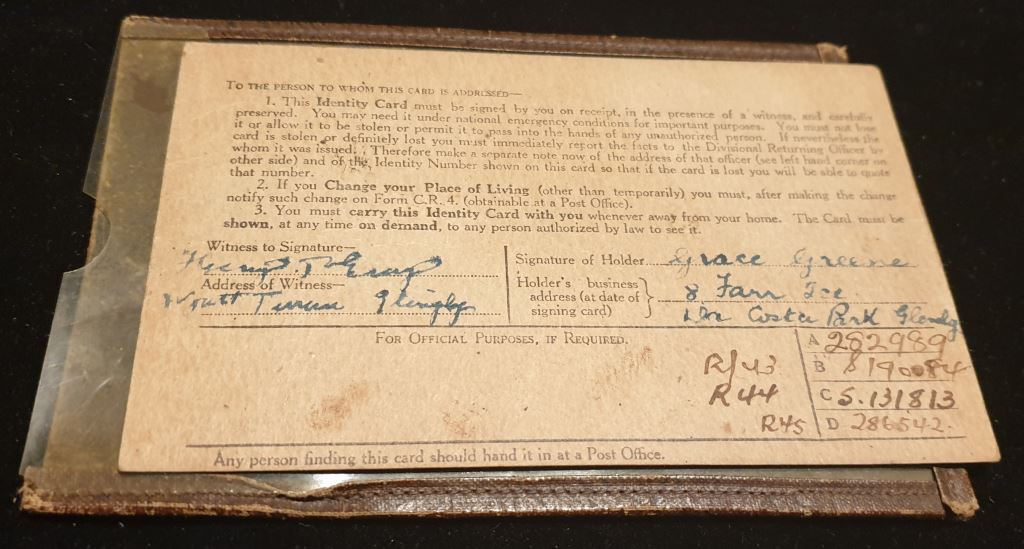 TO THE PERSON TO WHOM THIS CARD IS ADDRESSED—
1. This Identity Card must be signed by you on receipt, in the presence of a witness, and carefully
preserved. You may need it under national emergency conditions for important purposes. You must not lose
it or allow it to be stolen or permit it to pass into the hands of any unauthorized person. If nevertheless the
card is stolen or definitely lost you must immediately report the facts to the Divisional Returning Officer by
whom it was issued. Therefore make a separate note now of the address of that officer (see left hand corner on
other side) and of the Identity Number shown on this card so that if the card is lost you will be able to quote
that number.
2. If you Change your Place of Living (other than temporarily) you must, after making the change
notify such change on Form C.R. 4. (obtainable at a Post Office).
3. You must carry this Identity Card with you whenever away from your home. The Card must be
shown, at any time on demand, to any person authorized by law to see it.
Witness to Signature—
Address of Witness—
Terrace Glenelg
Signature of Holder Grace Greene
Holder's business
address (at date of
signing card) }
8 Farr Tce
Da Costa Park Glenelg
FOR OFFICIAL PURPOSES, IF REQUIRED.
R/43
R44
R45
A 282989
B 8190084
C S.131813
D 286542.
Any person finding this card should hand it in at a Post Office.